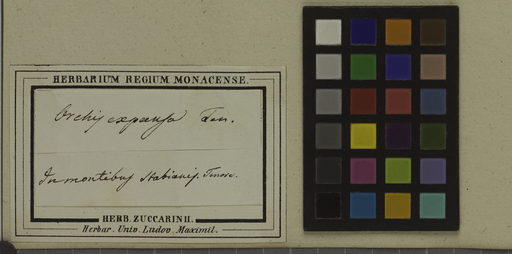 HERBARIUM REGIUM MONACENSE.
Orchis expansa Ten.
In montibus Stabianis. Tenore.
HERB. ZUCCARINII.
Herbar. Univ. Ludov. Maximil.